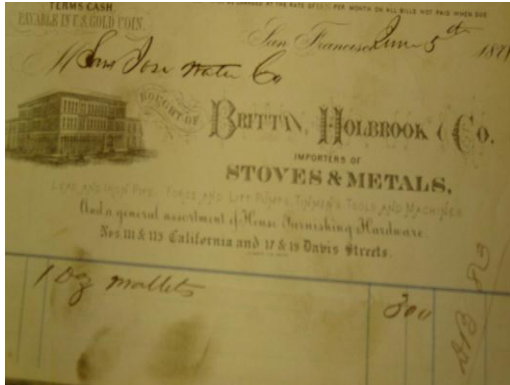 TERMS CASH.
PAYABLE IN U.S. GOLD COIN.
PER MONTH ON ALL BILLS NOT PAID WHEN DUE
San Francisco June 5th 187
San Jose Water Co
BOUGHT OF
BRITTAN, HOLBROOK & CO.
IMPORTERS OF
STOVES & METALS,
LEAD AND IRON PIPE, FORCE AND LIFT PUMPS, TINMEN'S TOOLS AND MACHINES
And a general assortment of House Furnishing Hardware.
Nos. 111 & 113 California and 17 & 19 Davis Streets.
1 Doz mallets 300